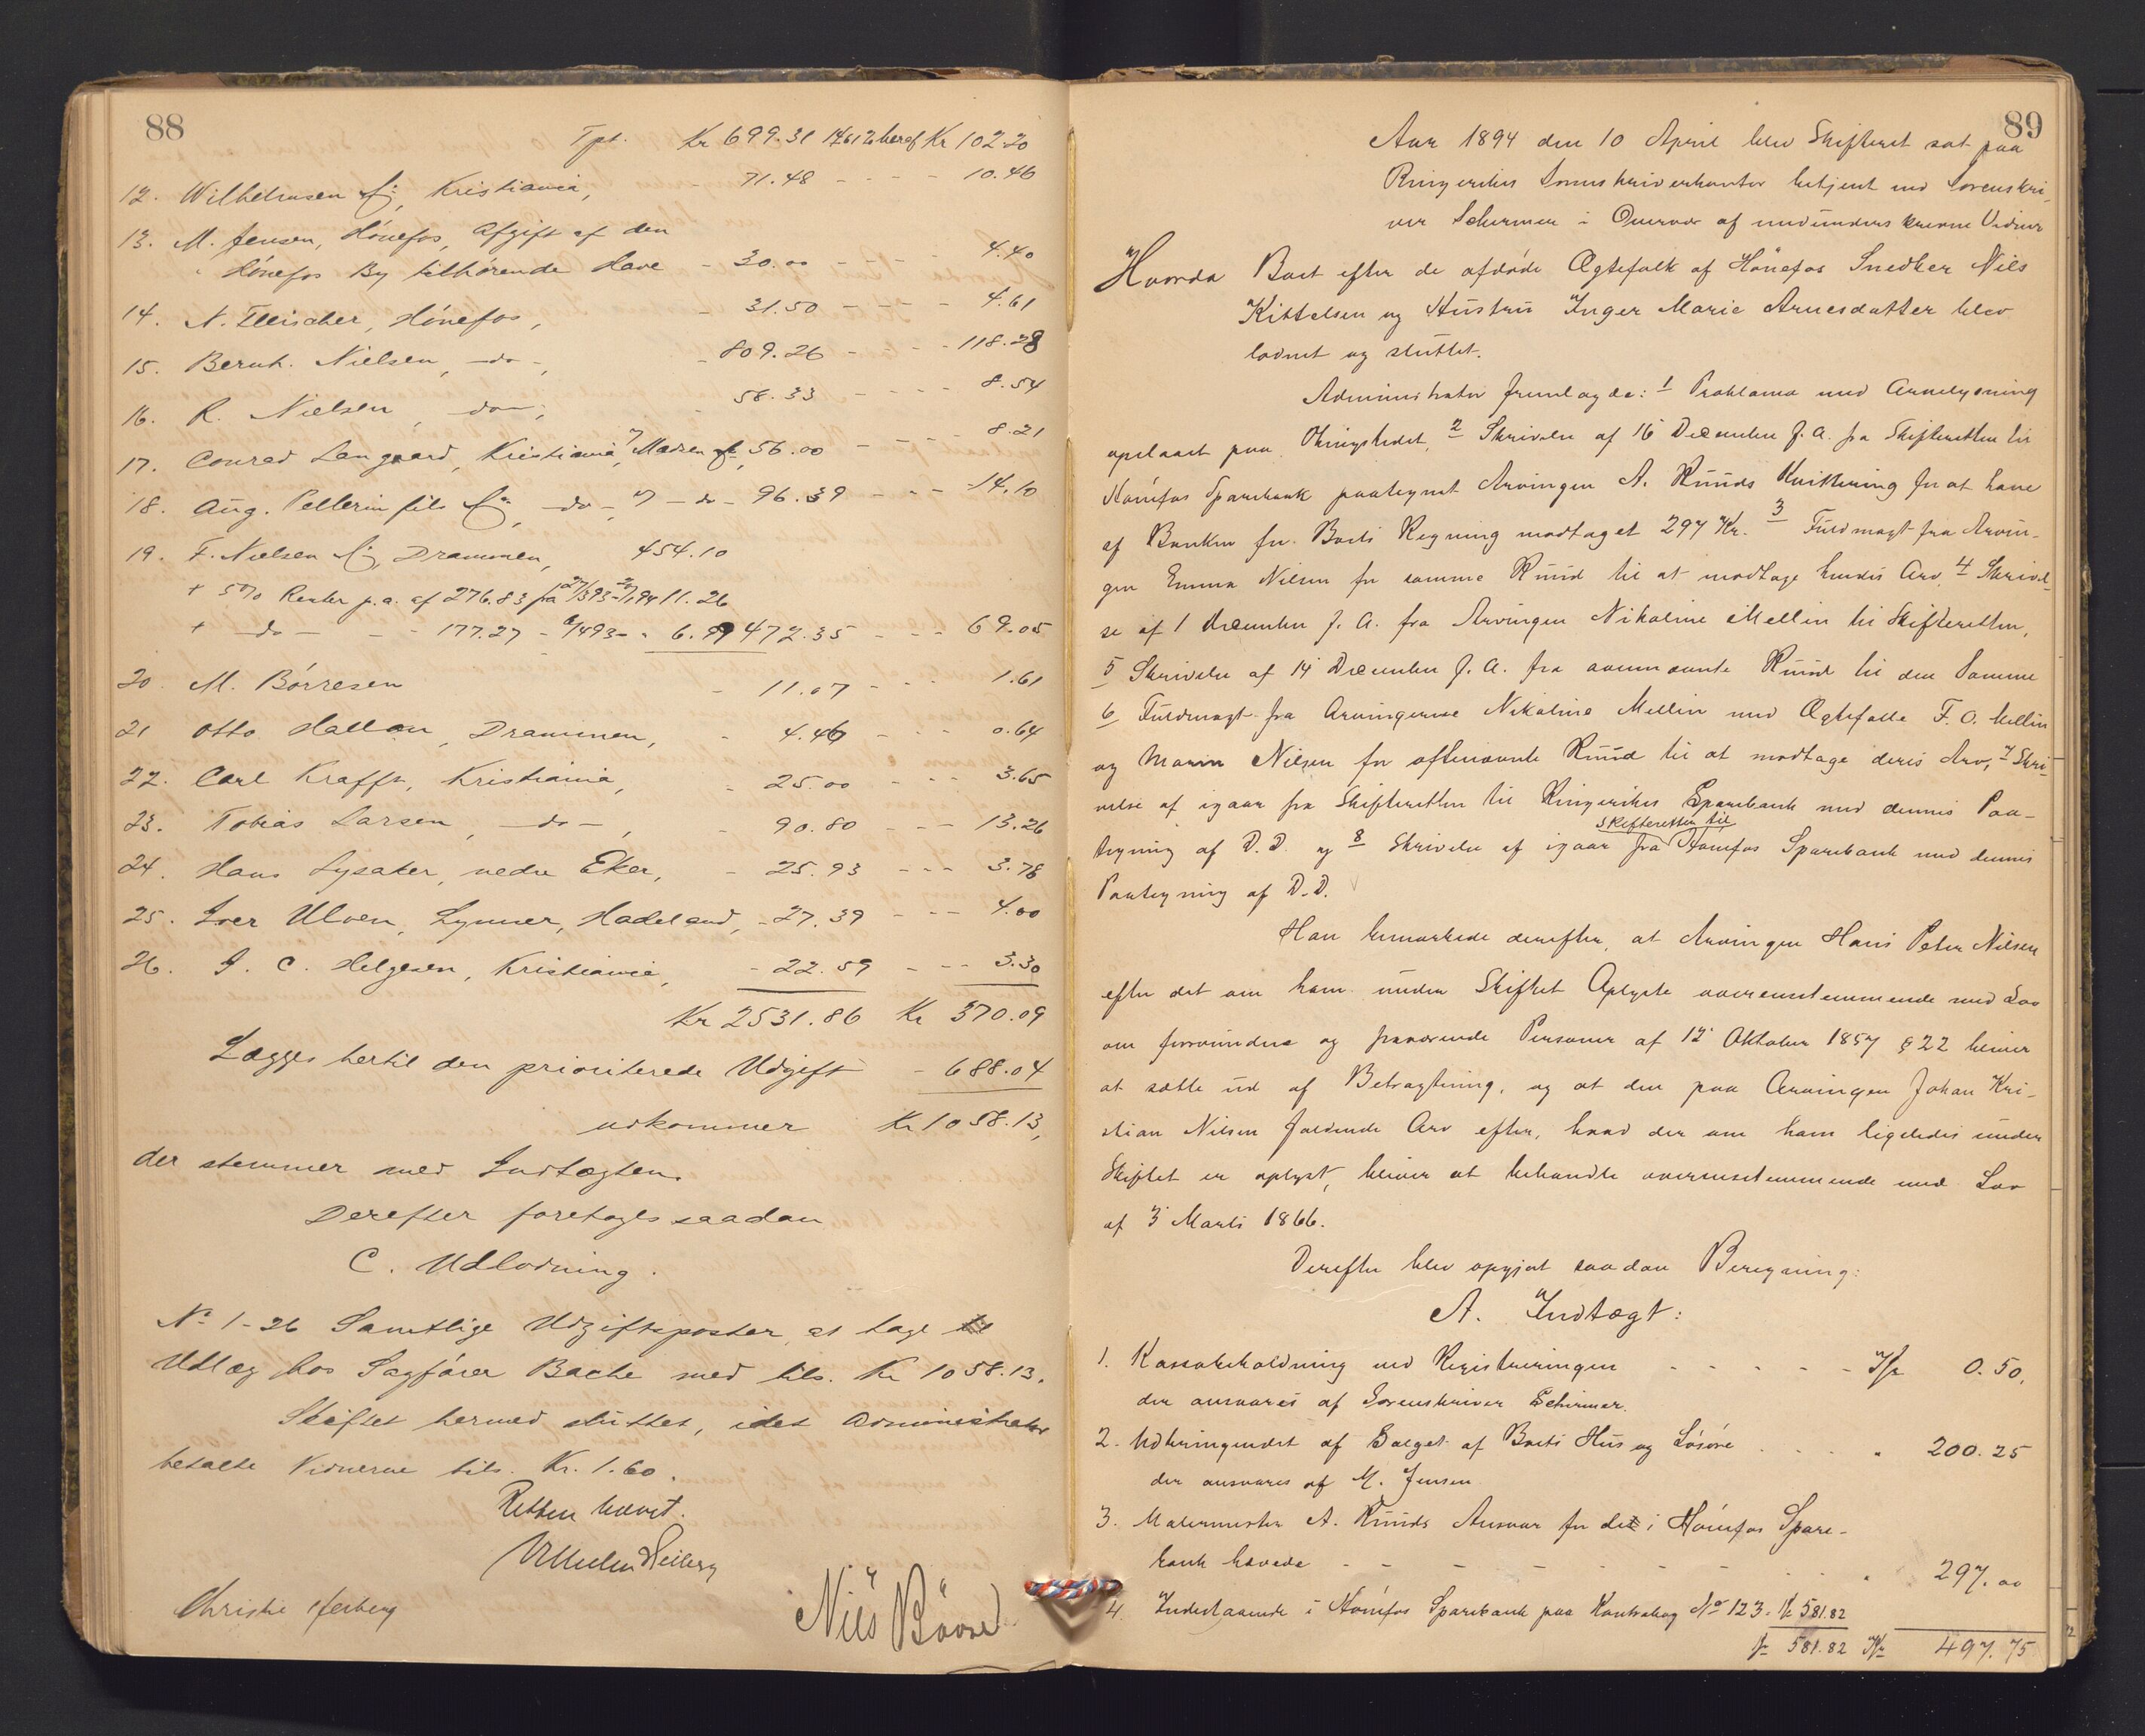 88
Tpt. Kr 699.31 14612 heraf Kr 102.20
12. Wilhelmsen & Co, Kristiania, - 71.48 - - - - 10.46
13. M. Jensen, Hönefos, Afgift af den
Hönefos By tilhörende Have - 30.00 - - - 4.40
14. N. Fleischer, Hönefos, - 31.50 - - - - 4.61
15. Bernh. Nielsen, -do-, - 809.26 - - - 118.28
16. R. Nielsen, -do-, - 58.33 - - - - 8.54
17. Conrad Langaard, Kristiania, 56.00 - - - - 8.21
18. Aug. Pellerin fils & Co, -do-, -do- 96.39 - - - 14.10
19. F. Nielsen & Co, Drammen, 454.10
+ 5% Renter p.a. af 276.83 fra 11.26
+ -do- - - 177.27 - 6.99 472.35 - - - 69.05
20. M. Börresen - 11.07 - - - 1.61
21 Otto Hallan, Drammen, - 4.46 - - - 0.64
22. Carl Krafft, Kristiania, - 25.00 - - - 3.65
23. Tobias Larsen, -do-, - 90.80 - - - 13.26
24. Hans Lysaker, nedre Eker, - 25.93 - - - 3.78
25. Iver Ulven, Lynner, Hadeland, - 27.39 - - - 4.00
26. J. C. Helgesen, Kristiania, - 22.59 - - - 3.30
Kr 2531.86 Kr 370.09
Lægges hertil den prioriterede Udgift - 688.04
udkommer Kr 1058.13,
der stemmer med Indtægten.
Derefter foretoges saadan
C. Udlodning.
No 1-26 Samtlige Udgiftsposter at tage
Udlæg hos Sagförer Bache med tils. Kr 1058.13.
Skiftet hermed sluttet, idet Administrator
betalte Vidnerne tils. Kr. 1.60.
Retten hævet.
Vilhelm Heiberg
Christie Nils
89
Aar 1894 den 10 April blev Skifteret sat paa
Ringerikes Sorenskriverkontor betjent ved Sorenskri-
ver Schirmer i Overvær af medunderskrevne Vidner
Hvorda Boet efter de afdøde Ægtefolk af Hönefos Snedker Nils
Kittelsen og Hustru Inger Marie Arnesdatter blev
lodnet og sluttet.
Administrator fremlagde: 1 Proklama med Annelysning
opslaaet paa Thingstedet, 2 Skrivelse af 16 December f.A. fra Skifteretten til
Hönefos Sparebank paategnet Arvingen A. Ruuds Kvittering for at have
af Banken for Boets Regning modtaget 297 Kr. 3 Fuldmagt fra Arvin-
gen Emma Nilsen for samme Ruud til at modtage hendes Arv, 4 Skrivel-
se af 1 December f.A. fra Arvingen Nikoline Mellin til Skifteretten,
5 Skrivelse af 14 December f.A. fra ovennævnte Ruud til den Samme
6 Fuldmagt fra Arvingerne Nikoline Mellin med Ægtefælle F.O. Mellin
og Maren Nilsen for oftnævnte Ruud til at modtage deres Arv, 7 Skri-
velse af igaar fra Skifteretten til Ringerikes Sparebank med dennes Paa-
tegning af D.D. og 8 Skrivelse af igaar fra Skifteretten til Hönefos Sparebank med dennes
Paategning af D.D.
Han bemærkede derefter, at Arvingen Hans Peter Nilsen
efter det om ham under Skiftet Oplyste overensstemmende med Lov
om forsvundne og fraværende Personer af 12 Oktober 1857 § 22 bliver
at sætte ud af Betragtning, og at den paa Arvingen Johan Kri-
stian Nilsen faldende Arv efter, hvad der om ham ligeledes under
Skiftet er oplyst, bliver at behandle overensstemmende med Lov
af 3 Marts 1866.
Derefter blev opgjort saadan Beregning:
A. Indtægt:
1. Kassabeholdning ved Registreringen - - - - - Kr 0.50,
der ansvares af Sorenskriver Schirmer.
2. Udbringendet af Salget af Boets Hus og Lösöre - - - - " 200.25
der ansvares af M. Jensen
3. Malermester A. Ruuds Ansvar for det i Hönefos Spare-
bank hævede - - - - - - - " 297.00
4. Indestaaende i Hönefos Sparebank paa Kontrabog No 123. Kr 581.82
Kr 581.82 Kr 497.75